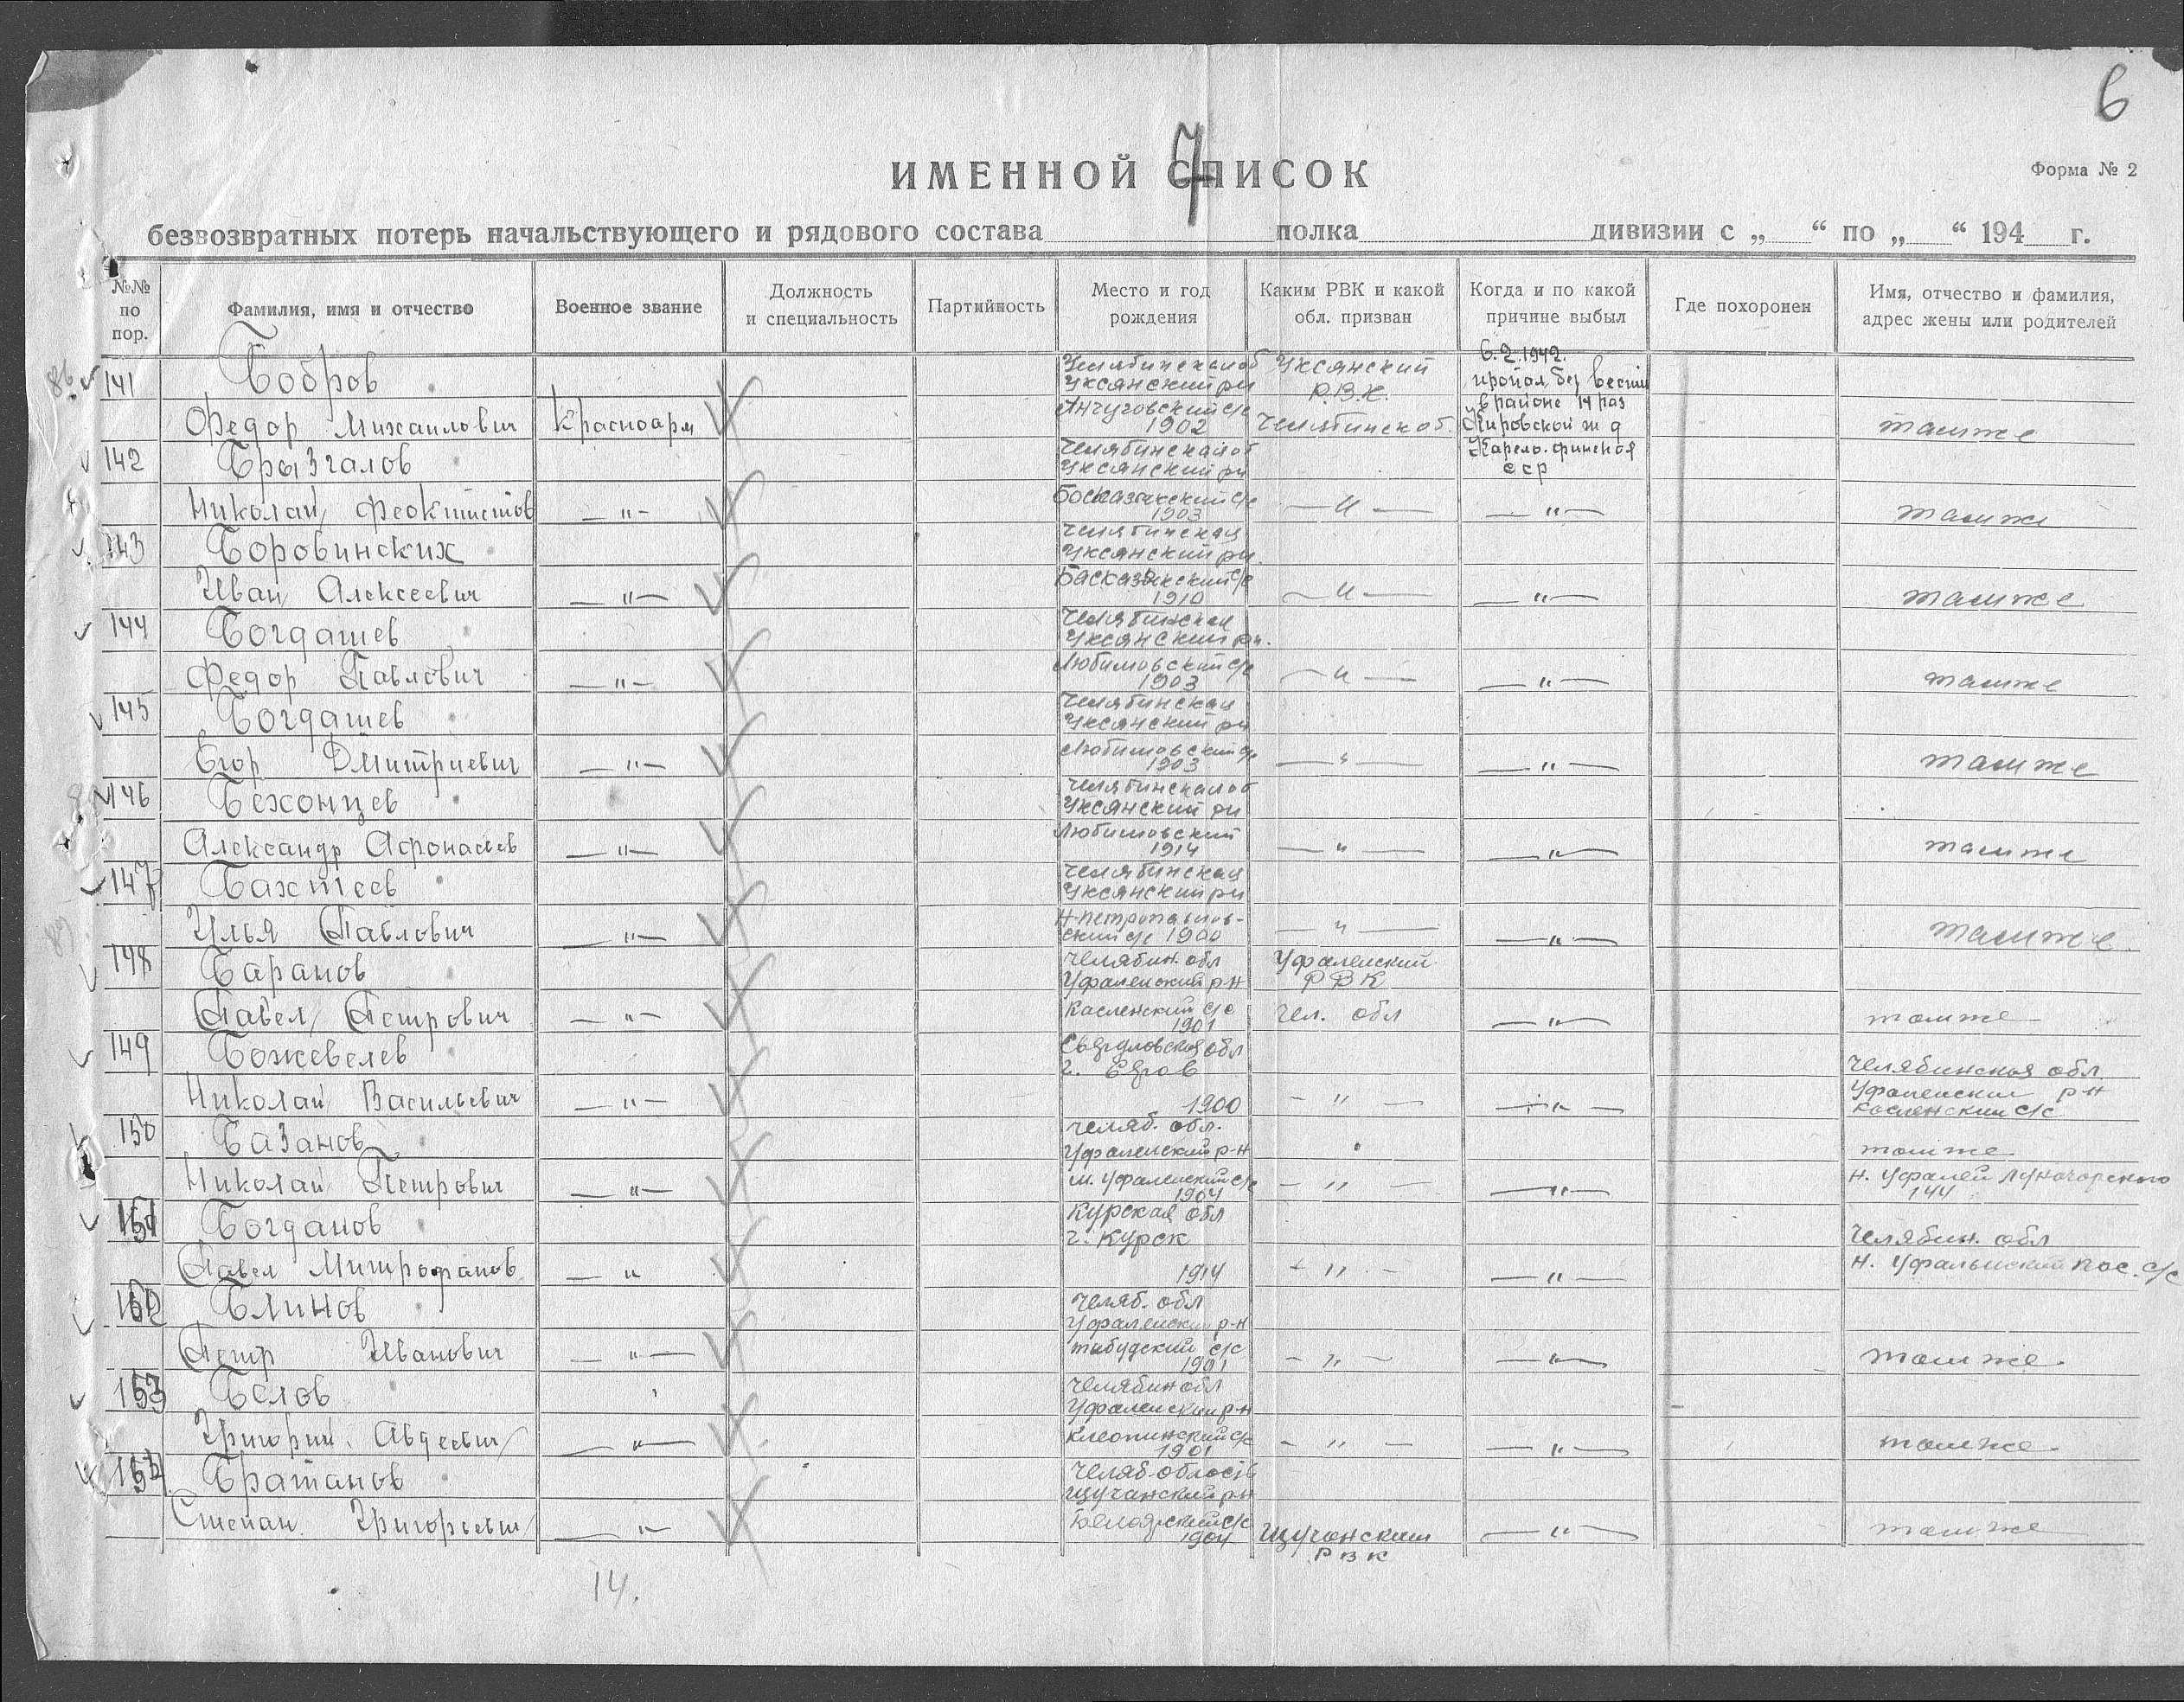 6
7
ИМЕННОЙ СПИСОК
Форма № 2
безвозвратных потерь начальствующего и рядового состава полка дивизии с „ “ по „ “ 194 г.
№№ по пор.
Фамилия, имя и отчество
Военное звание
Должность и специальность
Партийность
Место и год рождения
Каким РВК и какой обл. призван
Когда и по какой причине выбыл
Где похоронен
Имя, отчество и фамилия, адрес жены или родителей
141 Бобров Челябинская об Уксянский 6.2.1942.
Уксянский рн Р.В.К. пропал без вести
Федор Михайлович Красноарм Анчуговский с/с 1902 Челябинск об. в районе 14 раз Кировской ж д там же
142 Брызгалов Челябинская об Карело-финской
Уксянский рн сср
Николай Феоктистов —"— 1903 —"— —"— там же
143 Боровинских Челябинская
Уксянский рн
Иван Алексеевич —"— 1910 —"— —"— там же
144 Богдашев Челябинская
Уксянский рн.
Федор Павлович —"— Любимовский с/с 1903 —"— —"— там же
145 Богдашев Челябинская
Уксянский рн
Егор Дмитриевич —"— Любимовский с/с 1903 —"— —"— там же
146 Бехонцев Челябинская об
Уксянский рн
Александр Афонасьев —"— Любимовский 1914 —"— —"— там же
147 Бахтеев Челябинская
Уксянский рн
Илья Павлович —"— Н-петропавлов-ский с/с 1900 —"— —"— там же
148 Баранов Челябин. обл Уфалейский
Уфалейский р-н РВК
Павел Петрович —"— Каслинский с/с 1901 Чел. обл —"— там же
149 Божевелев Свердловская обл
г. Челябинская обл.
Николай Васильевич —"— 1900 —"— —"— Уфалейский р-н
с/с
150 Базанов Челяб. обл.
Уфалейский р-н там же
Николай Петрович —"— Уфалейский с/с 1904 —"— —"— Н. Уфалей Луначарского 144
151 Богданов Курская обл
г. Курск Челябин. обл
Павел Митрофанов —"— 1914 —"— —"— Н. Уфалейский пос. с/с
152 Блинов Челяб. обл
Уфалейский р-н
Петр Иванович —"— с/с 1901 —"— —"— там же
153 Белов Челябин обл
Уфалейский р-н
Григорий Авдеевич —"— с/с 1901 —"— —"— там же
154 Братанов Челяб. область
Щучанский р-н
Степан Григорьевич —"— Белоярский с/с 1904 Щучанским —"— там же
РВК
14.